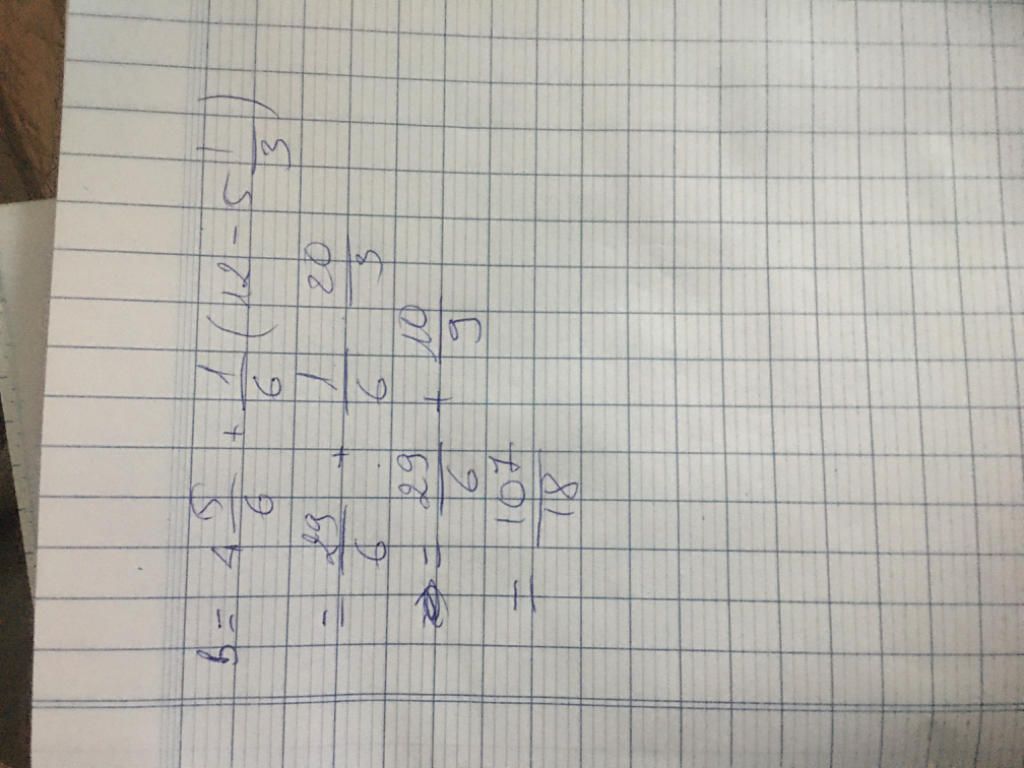 B = 4 5/6 + 1/6 (12 - 5 1/3)
= 29/6 + 1/6 . 20/3
= 29/6 + 10/9
= 107/18